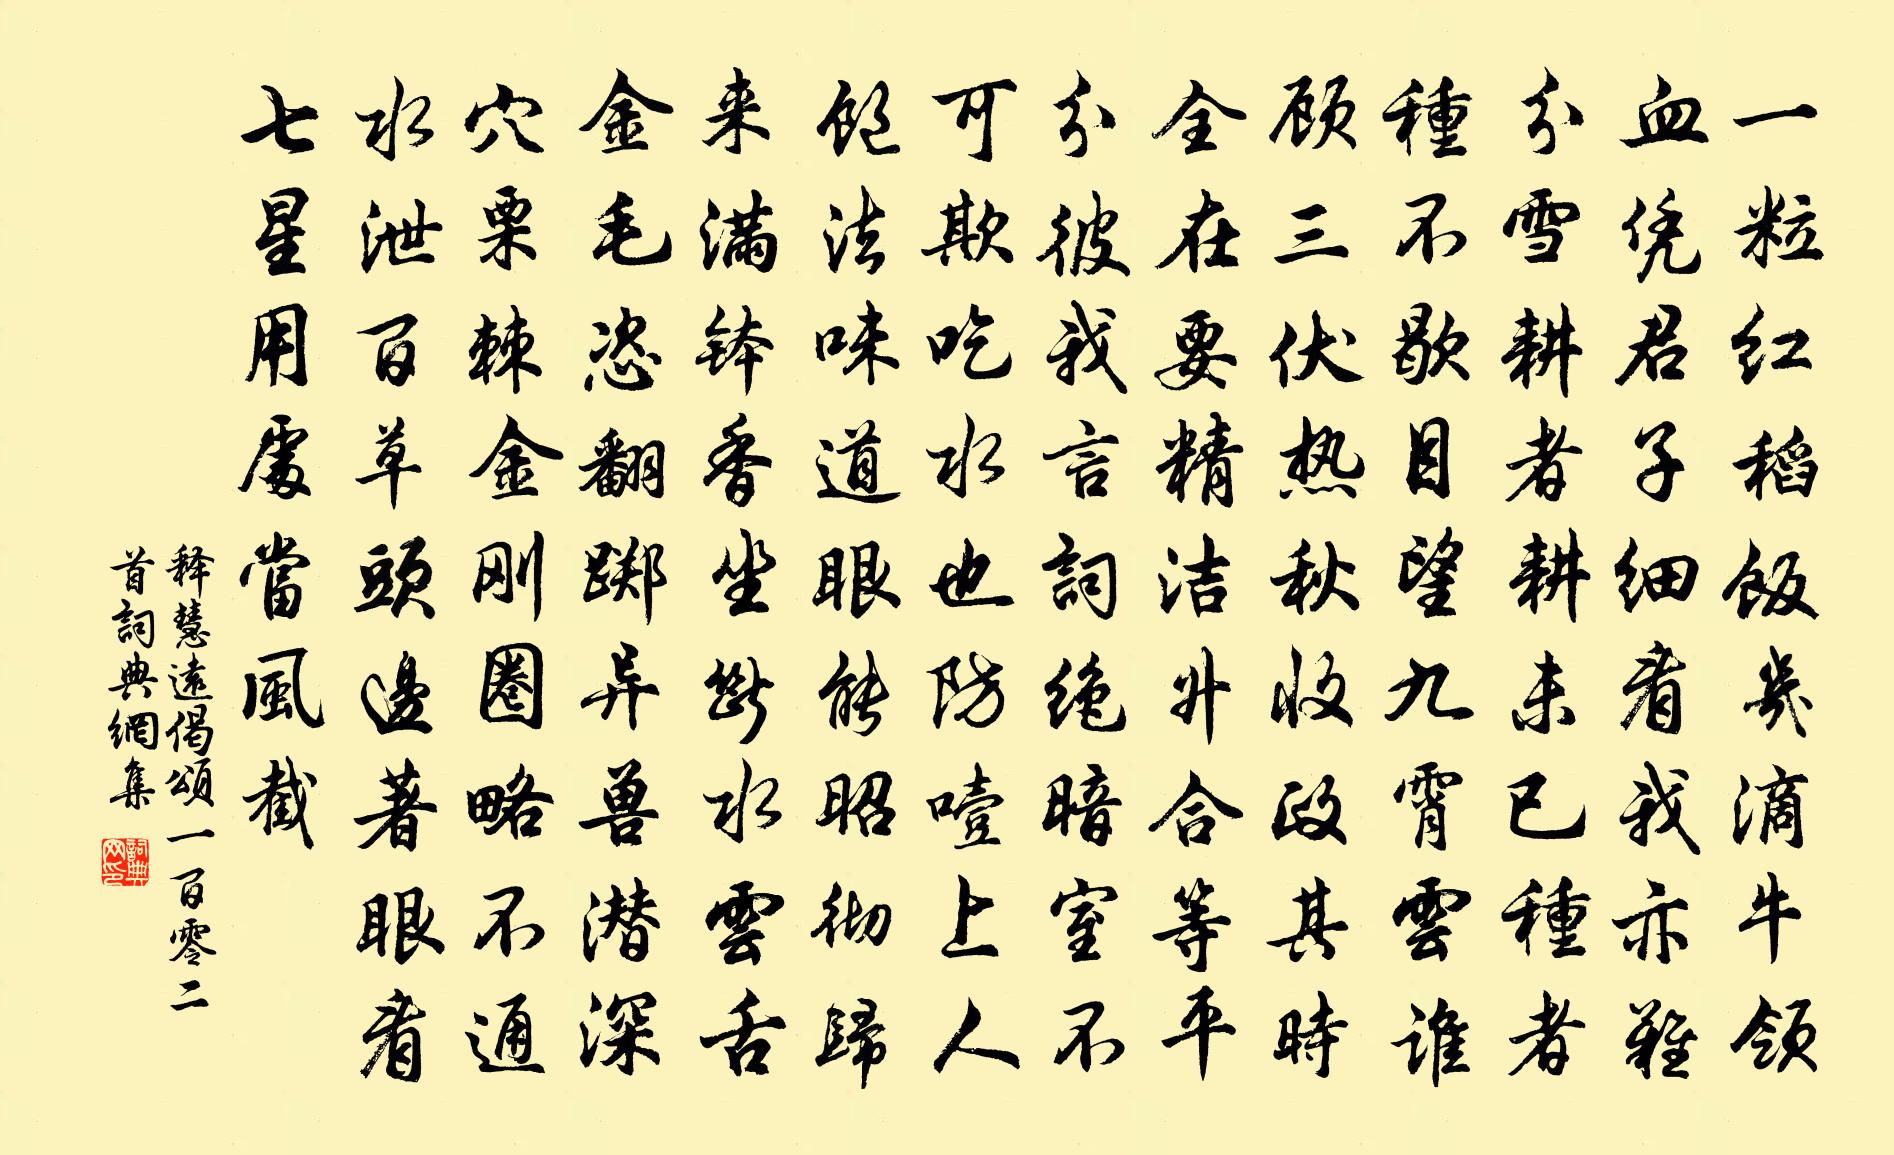 一粒红稻饭幾滴牛领
血凭君子细看我亦難
分雪耕者耕未已種者
種不歇目望九霄雲谁
顾三伏热秋收政其時
全在要精洁升合等平
分彼我言詞绝暗室不
可欺吃水也防噎上人
饱法味道眼能昭彻歸
来满钵香坐斷水雲舌
金毛恣翻踯异兽潜深
穴栗棘金刚圈略不通
水泄百草頭邊著眼看
七星用處當風截
释慧遠偈頌一百零二
首詞典網集
詞典
网印